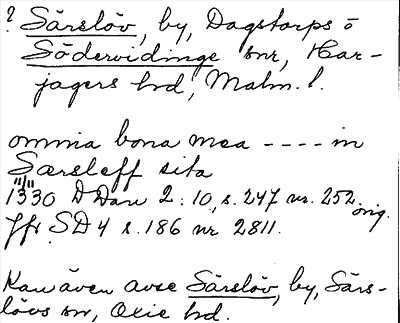 ? Särslöv, by, Dagstorps o
Södervidinge snr, Har-
jagers hd, Malm. l.
omnia bona mea ---- in
Særsleff sita
1330 11/11 DDan 2:10, s. 247 nr. 252 orig.
Jfr SD 4 s. 186 nr. 2811.
Kan även avse Särslöv, by, Särs-
lövs sn, Oxie hd.